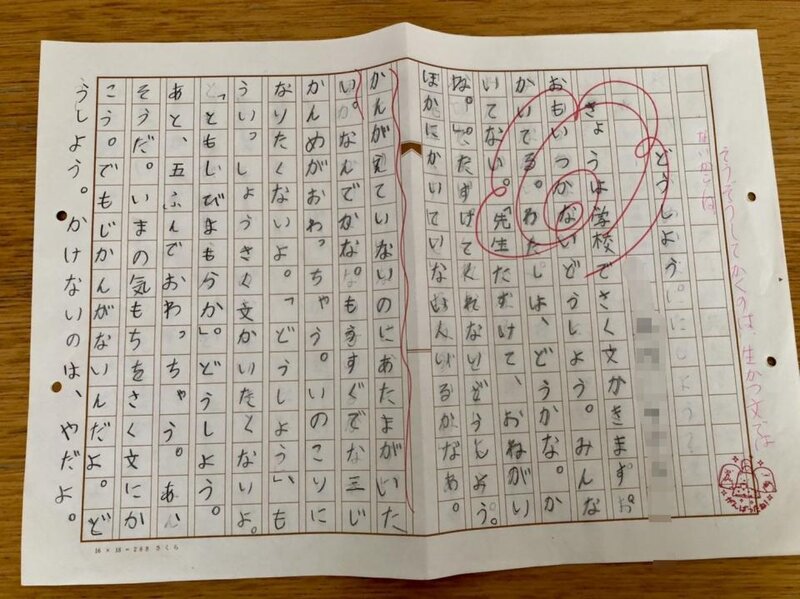 そうぞうしてかくのは、生かつ文では
ないからね
どうしよう。
きょうは学校でさく文がきます。
おもいつかないどうしよう。みんな
かいてる。わたしは、どうかな。か
いてない。「先生たすけて、おねがい
ね。」たすけてくれないどうしよう。
ほかにかいていない人いるかなぁ。
かんがえていないのにあたまがいた
い。なんでかな。もうすぐで三じ
かんめがおわっちゃう。いのこりに
なりたくないよ。「どうしよう」も
ういっしょうさく文かいたくないよ。
「ともしびまも分か」。どうしよう。
あと、五ふんでおわっちゃう。あ、
そうだ。いまの気もちをさく文にか
こう。でもじかんがないんだよ。ど
うしよう。かけないのは、やだよ。
16 × 18 = 288 さくら